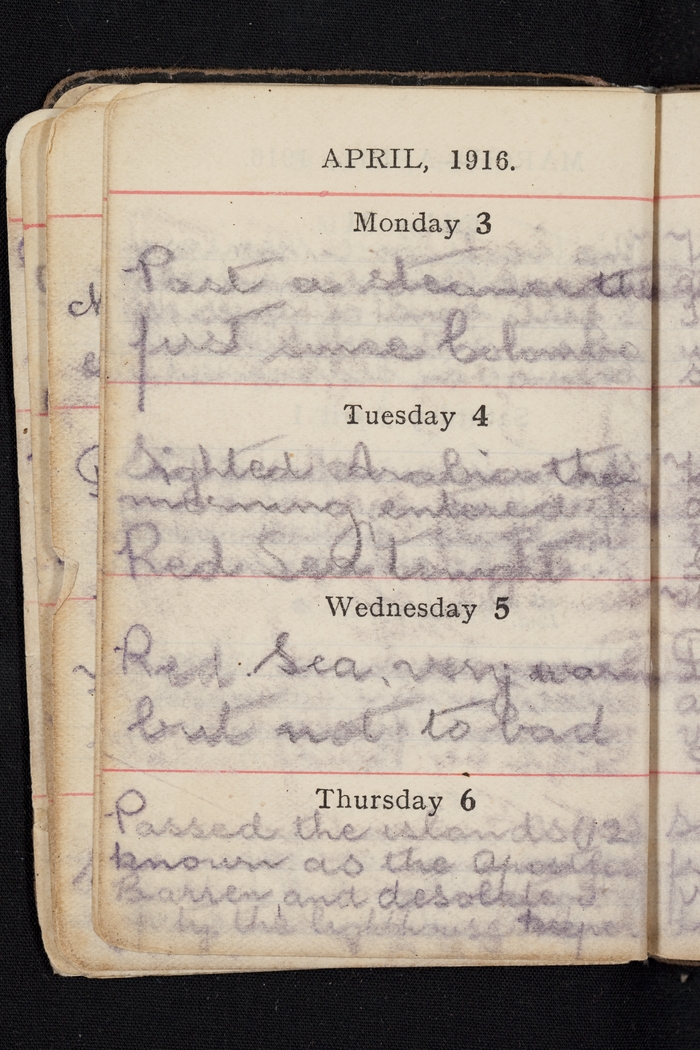 APRIL, 1916.
Monday 3
Past a steamer the
first since Colombo
Tuesday 4
Sighted Arabia this
morning entered
Red Sea tonight
Wednesday 5
Red Sea, very warm
but not to bad
Thursday 6
Passed the islands (12)
known as the
Barren and desolate
the lighthouse keeper